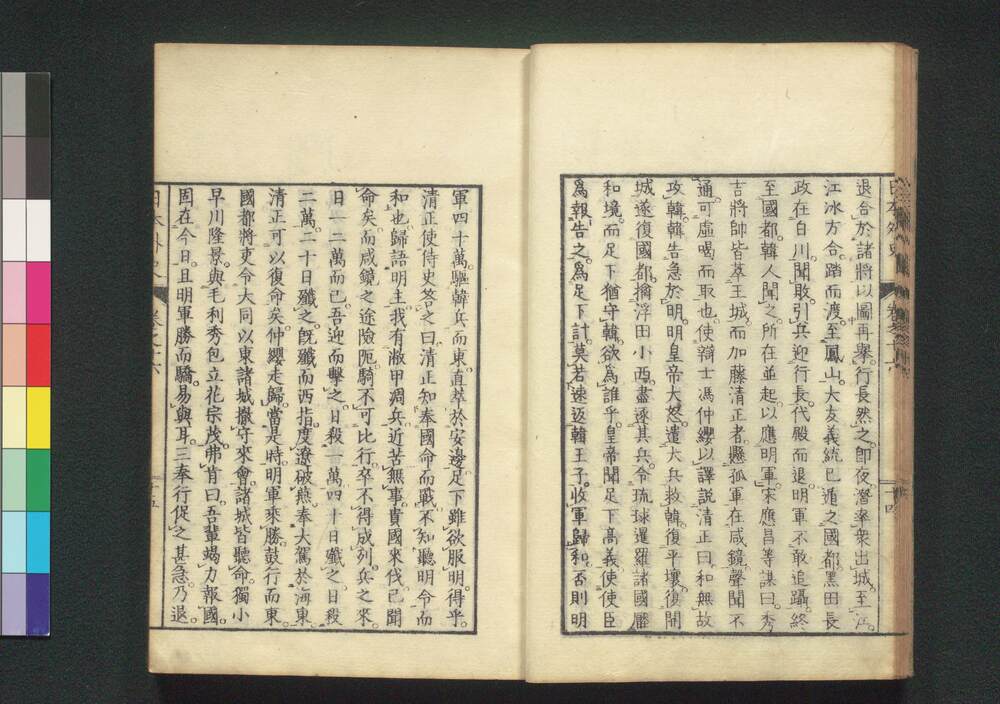 退合於諸將以圖再舉行長然之即夜潛率衆出城至江
江冰方合踏而渡至鳳山大友義統已遁之國都黑田長
政在白川聞敗引兵迎行長代殿而退明軍不敢追躡終
至國都韓人聞之所在並起以應明軍宋應昌等謀曰秀
吉將帥皆萃王城而加藤清正者懸孤軍在咸鏡聲聞不
通可虛喝而取也使辯士馮仲纓以譯說清正曰和無故
攻韓韓告急於明明皇帝大怒遣大兵救韓復平壤復開
城遂復國都擒浮田小西盡逐其兵令琉球暹羅諸國躪
和境而足下猶守韓欲爲誰乎皇帝聞足下高義使使臣
爲報告之爲足下計莫若速返韓王子收軍歸和否則明
軍四十萬驅韓兵而東直萃於安邊足下雖欲服明得乎
清正使侍史答之曰清正知奉國命而戰不知聽明令而
和也歸語明主我有敝甲凋兵近苦無事貴國來伐已聞
命矣而咸鏡之途險阨騎不可比行卒不得成列兵之來
日一二萬而已吾迎而擊之日殺一萬四十日殲之日殺
二萬二十日殲之既殲而西指度遼破燕奉大駕於海東
清正可以復命矣仲纓走歸當是時明軍乘勝鼓行而東
國都將吏令大同以東諸城撤守來會諸城皆聽命獨小
早川隆景與毛利秀包立花宗茂弗肯曰吾輩竭力報國
固在今日且明軍勝而驕易與耳三奉行促之甚急乃退